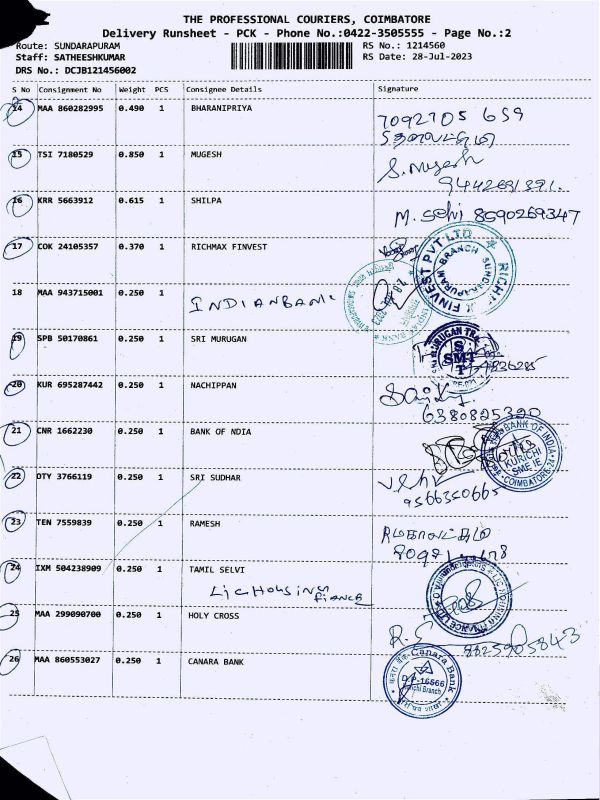 THE PROFESSIONAL COURIERS, COIMBATORE
Delivery Runsheet - PCK - Phone No.:0422-3505555 - Page No.:2
Route: SUNDARAPURAM RS No.: 1214560
Staff: SATHEESHKUMAR RS Date: 28-Jul-2023
DRS No.: DCJB121456002
S No Consignment No Weight PCS Consignee Details Signature
14 MAA 860282995 0.490 1 BHARANIPRIYA
7092705 659
15 TSI 7180529 0.850 1 MUGESH S. Mugesh
9442691391.
16 KRR 5663912 0.615 1 SHILPA M. Selvi 8590269347
17 COK 24105357 0.370 1 RICHMAX FINVEST
RICHMAX FINVEST PVT LTD.
BRANCH SUNDARAPURAM
18 MAA 943715001 0.250 1
INDIANBANK
INDIAN BANK
19 SPB 50170861 0.250 1 SRI MURUGAN
SMT
20 KUR 695287442 0.250 1 NACHIPPAN
6380825320
21 CNR 1662230 0.250 1 BANK OF NDIA
BANK OF INDIA
KURICHI
SME IE
COIMBATORE-24
22 OTY 3766119 0.250 1 SRI SUDHAR
9566350665
23 TEN 7559839 0.250 1 RAMESH
24 IXM 504238909 0.250 1 TAMIL SELVI
Lic Housing
finance
25 MAA 299090700 0.250 1 HOLY CROSS
8825905843
26 MAA 860553027 0.250 1 CANARA BANK
Canara Bank
D.P-16566
Branch